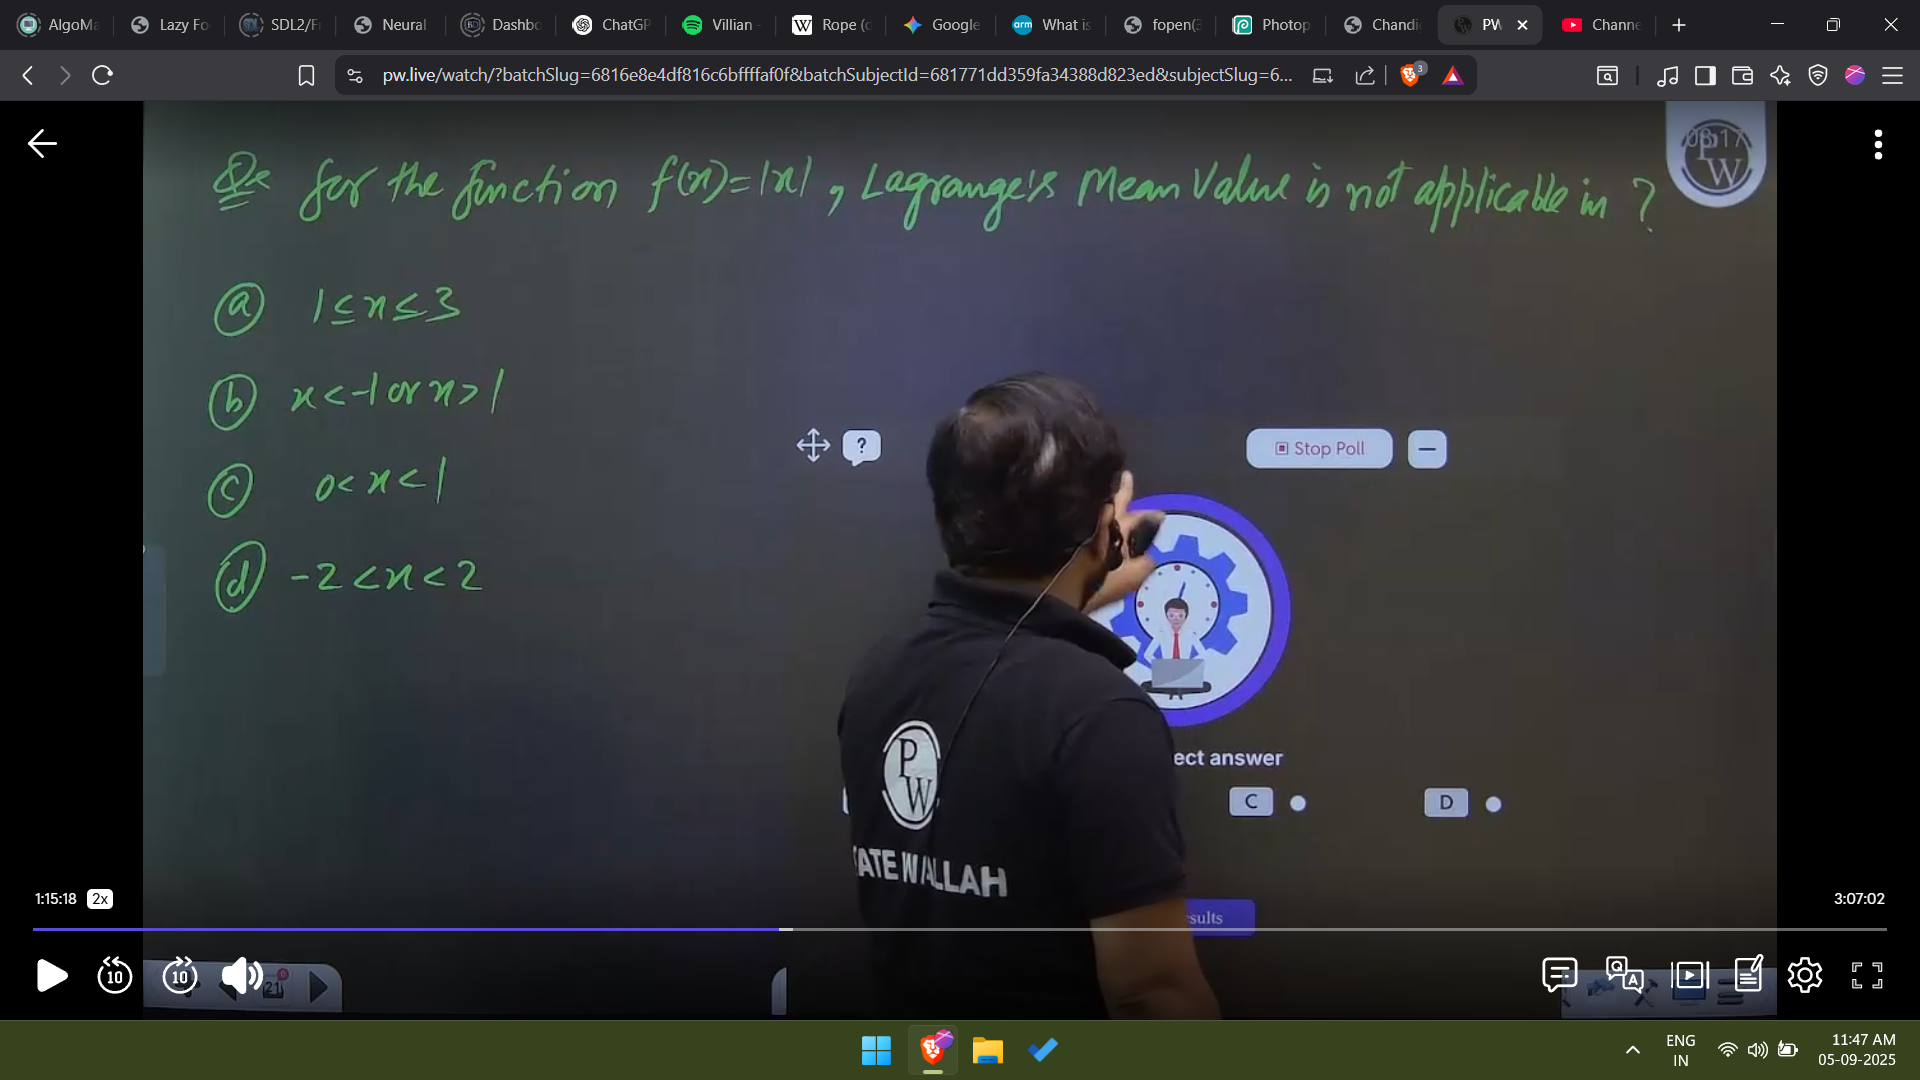 AlgoMa
Lazy Fo
SDL2/F
Neural
Dashbo
ChatGP
Villian -
Rope (
Google
What is
fopen(3
Photop
Chandi
PW
Channe
pw.live/watch/?batchSlug=6816e8e4df816c6bffffaf0f&batchSubjectId=681771dd359fa34388d823ed&subjectSlug=6...
3
Qx for the function f(x)=|x|, Lagrange's Mean Value is not applicable in ?
08:17
PW
(a) 1≤x≤3
(b) x<-1 or x>1
(c) 0<x<1
(d) -2<x<2
?
Stop Poll
ect answer
C
D
PW
ATE WALLAH
sults
1:15:18 2x
3:07:02
10
10
21
ENG
IN
11:47 AM
05-09-2025